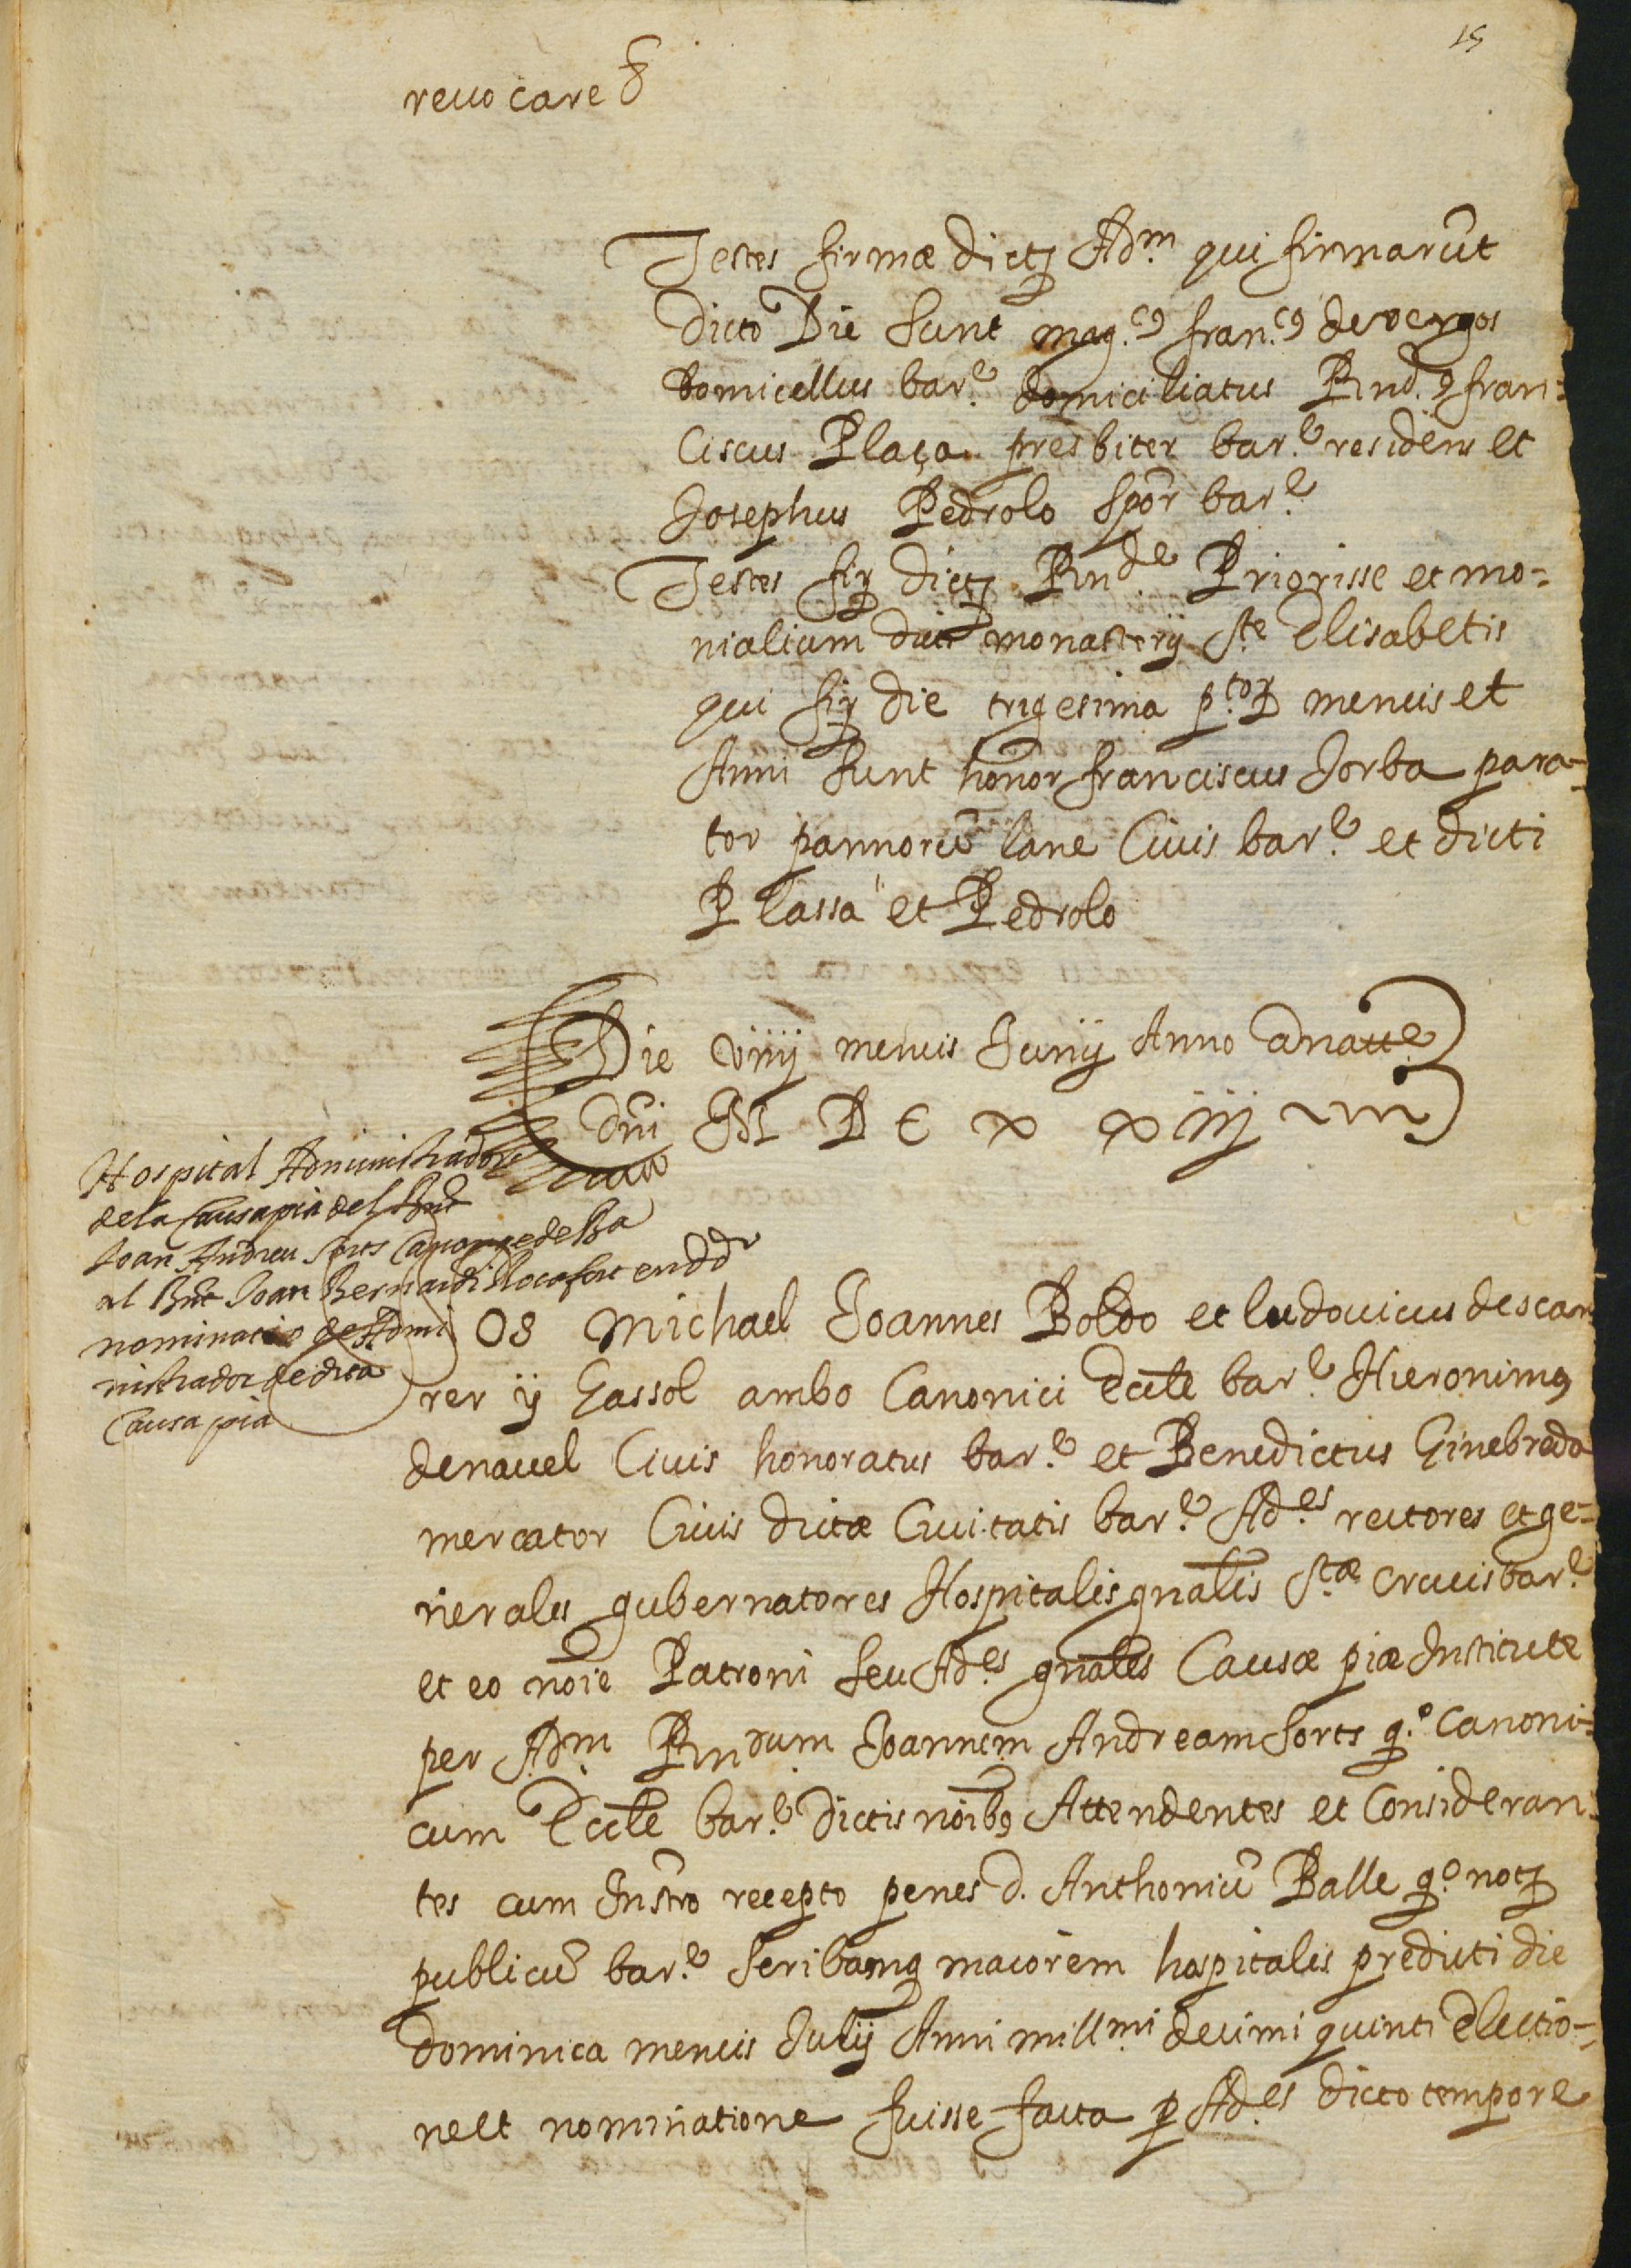 15
reuocare &
Testes firmæ dictȝ Adm. qui firmarūt
Dicto Die sunt mag.cꝰ fran.cꝰ de vergos
Domicellus bar.e domiciliatus Rnd.ꝰ fran=
ciscus Plaça presbiter bar.e residens et
Josephus Pedrolo Spōr bar.e
Testes dictȝ Rnde. Priorisse et mo=
nialium dicti monasterij Ste Elisabetis
qui die trigesima mensis et
Anni sunt honōr franciscus Jorba para-
tor pannorū lane Ciuis bar.e et dicti
Plassa et Pedrolo
Die viiij mensis Junij Anno anatte
dn̄i M D C x xiiij
Hospital Administradors
dela Causa pia del Rnt
Joan Andreu Sorts Canonge de Ba
al Rnt Joan Bernardi Rocafort en ddr
nominacio de Admi
nistrador de dita
Causa pia
NOS Michael Joannes Boldo et ludouicus descar
rer y Gassol ambo Canonici Eccle bar.e Hieronimꝰ
denauel Ciuis honoratus bar.e et Benedictus Ginebreda
mercator Ciuis dictæ Ciuitatis bar.e Ad.es rectores et ge=
nerales gubernatores Hospitalis gn̄alis S.tæ Crucis bar.e
et eo nōie Patroni seu Ad.es gn̄ales Causæ piæ Institute
per Adm. Rndum. Joannem Andream Sorts q.o Canoni=
cum Eccle bar.e Dictis nōibꝰ Attendentes et Consideran=
tes cum Instr̄o recepto penes d. Anthoniū Balle q.o notȝ
publicū bar.e scribamq maiorem hospitalis predicti die
dominica mensis Julij Anni mill.mi decimi quinti Electio=
nē et nominatione fuisse facta p Ad.es dicto tempore